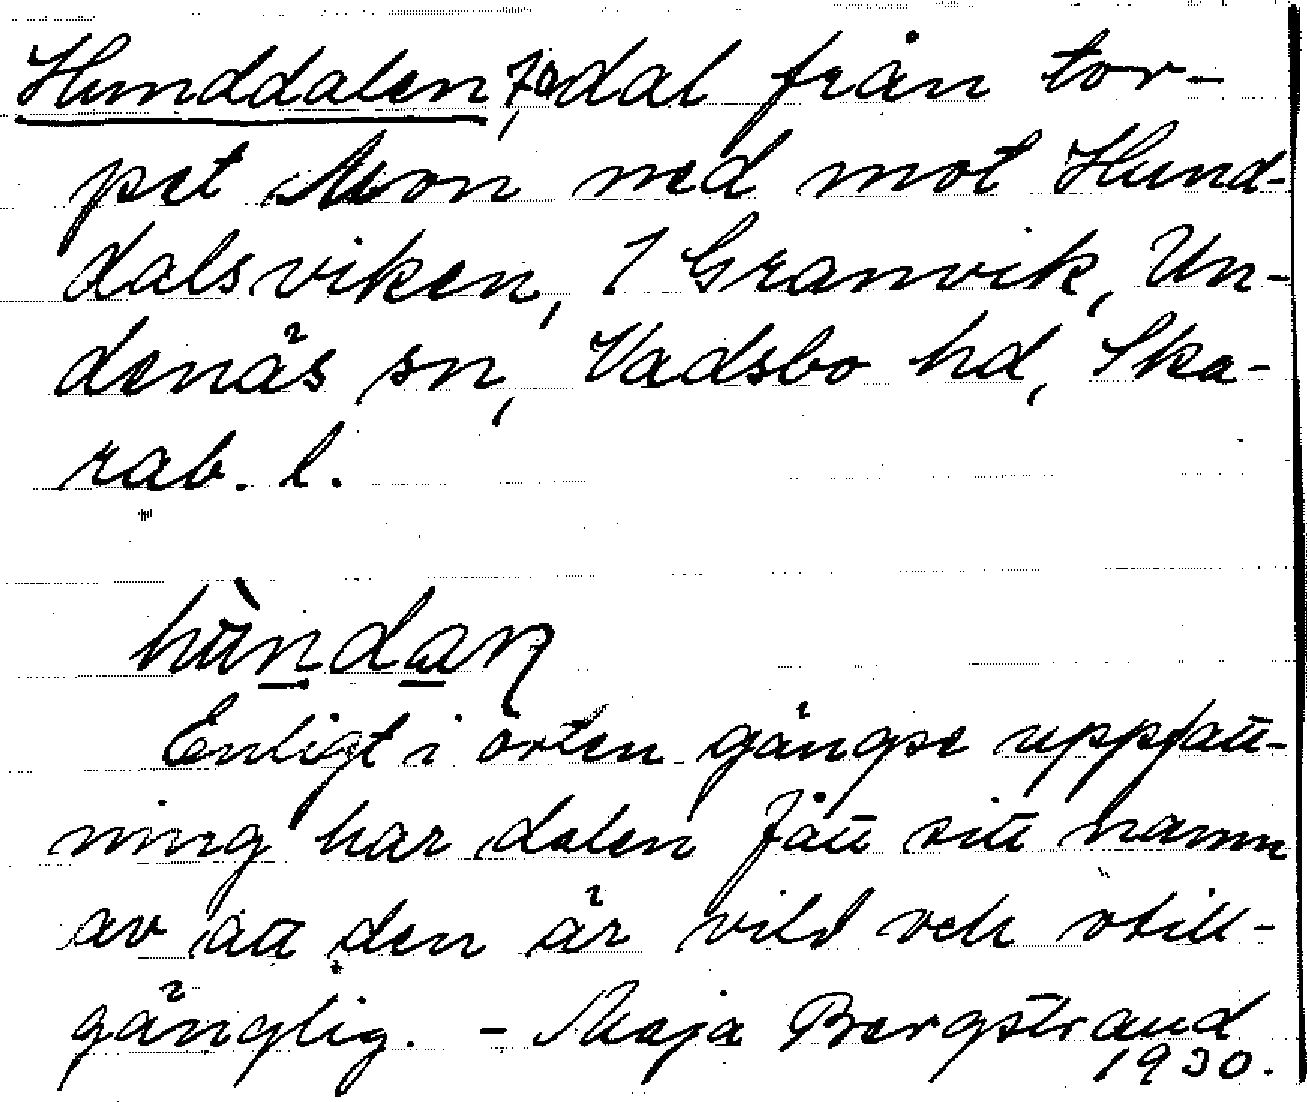 Hunddalen, dal från tor-
pet Mon ned mot Hund-
dalsviken, 1 Granvik, Un-
denäs sn, Vadsbo hd, Ska-
rab. l.
hùndaɳ
Enligt i orten gängse uppfatt-
ning har dalen fått sitt namn
av att den är vild och otill-
gänglig. - Maja Bergstrand
1930.